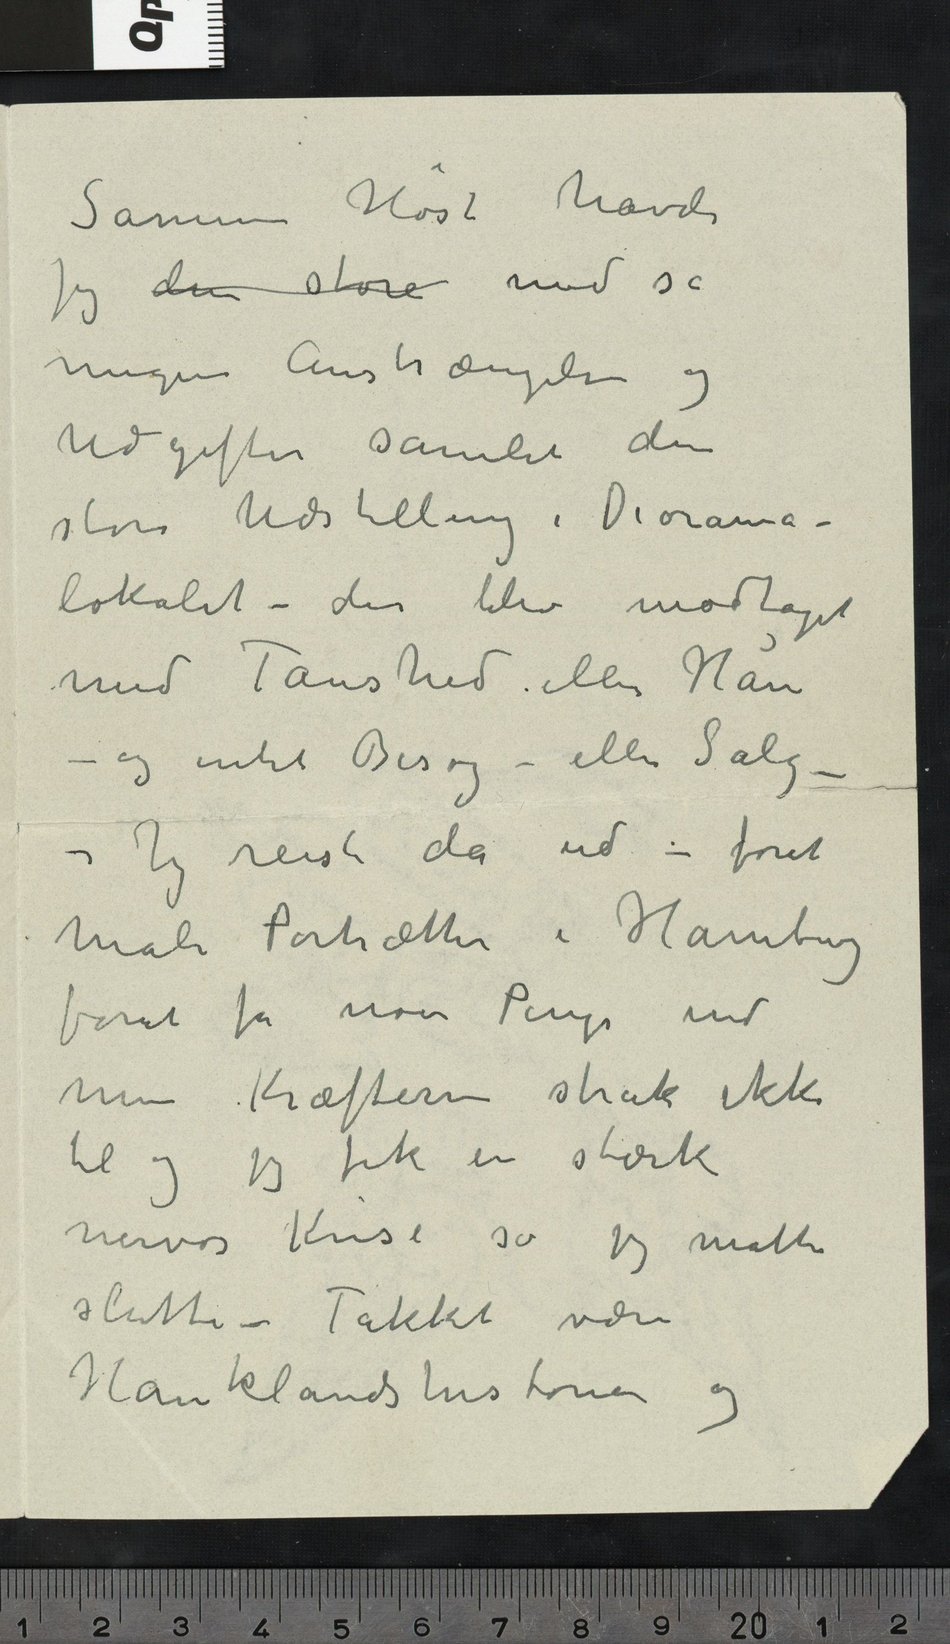 Samme Höst havde
jeg den store med så
megen Anstrængelse og
Udgifter samlet den
store Udstilling i Diorama-
lokalet – der blev modtaget
med Taushed eller Hån
– og intet Besøg – eller Salg –
– Jeg reiste da ud – forat
male Portrætter i Hamburg
forat få noen Penge ind
men Kræfterne strak ikke
til og jeg fik en stærk
nervøs Krise så jeg måtte
slutte – Takket være
Hauklandshistorien og